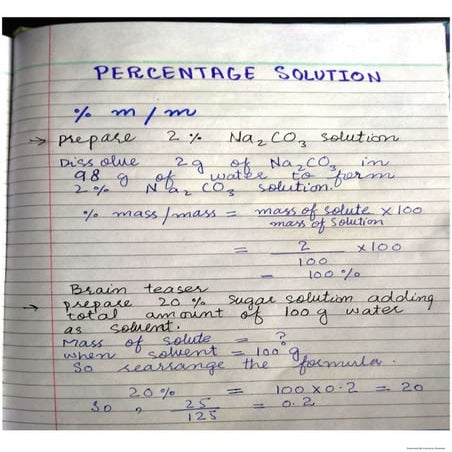 PERCENTAGE SOLUTION
% m/m
→ Prepare 2 % Na₂CO₃ solution
Dissolve 2g of Na₂CO₃ in
98 g of water to form
2 % Na₂CO₃ solution.
% mass/mass = mass of solute × 100
mass of solution
= 2 × 100
100
= 100 %
Brain teaser
→ prepare 20 % sugar solution adding
total amount of 100 g water
as solvent.
Mass of solute = ?
when solvent = 100 g
So rearrange the formula.
20 % = 100 × 0.2 = 20
So, 25 = 0.2
125